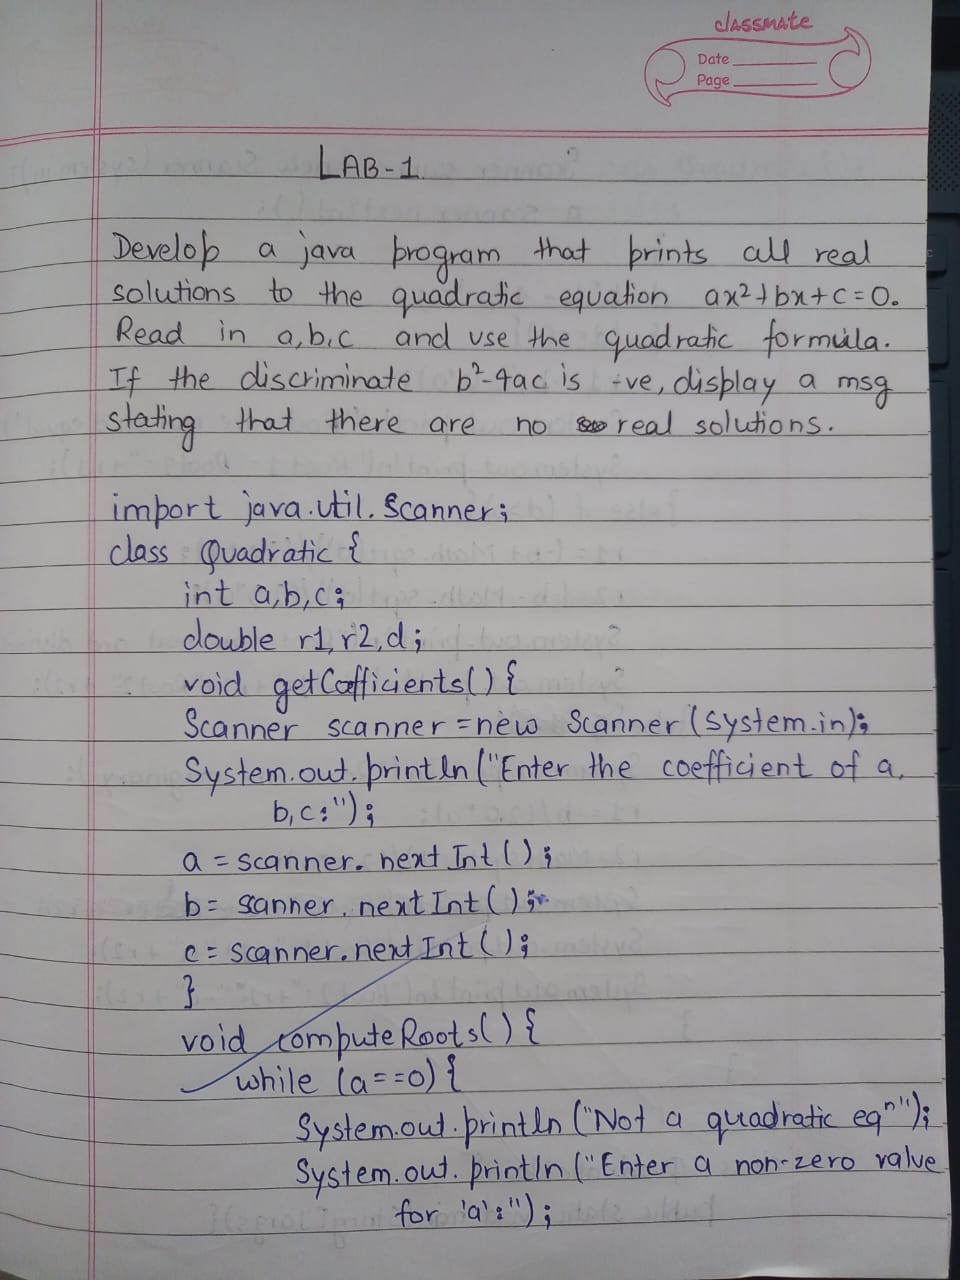 classmate
Date
Page
LAB-1
Develop a java program that prints all real
solutions to the quadratic equation ax²+bx+c=0.
Read in a,b,c and use the quadratic formula.
If the discriminate b²-4ac is -ve, display a msg
stating that there are no real solutions.
import java.util.Scanner;
class Quadratic {
int a,b,c;
double r1,r2,d;
void getCofficients(){
Scanner scanner=new Scanner(System.in);
System.out.println("Enter the coefficient of a,
b,c:");
a=scanner.nextInt();
b=sanner.nextInt();
c=scanner.nextInt();
}
void computeRoots(){
while (a==0){
System.out.println("Not a quadratic eqⁿ");
System.out.println("Enter a non-zero value
for 'a':");